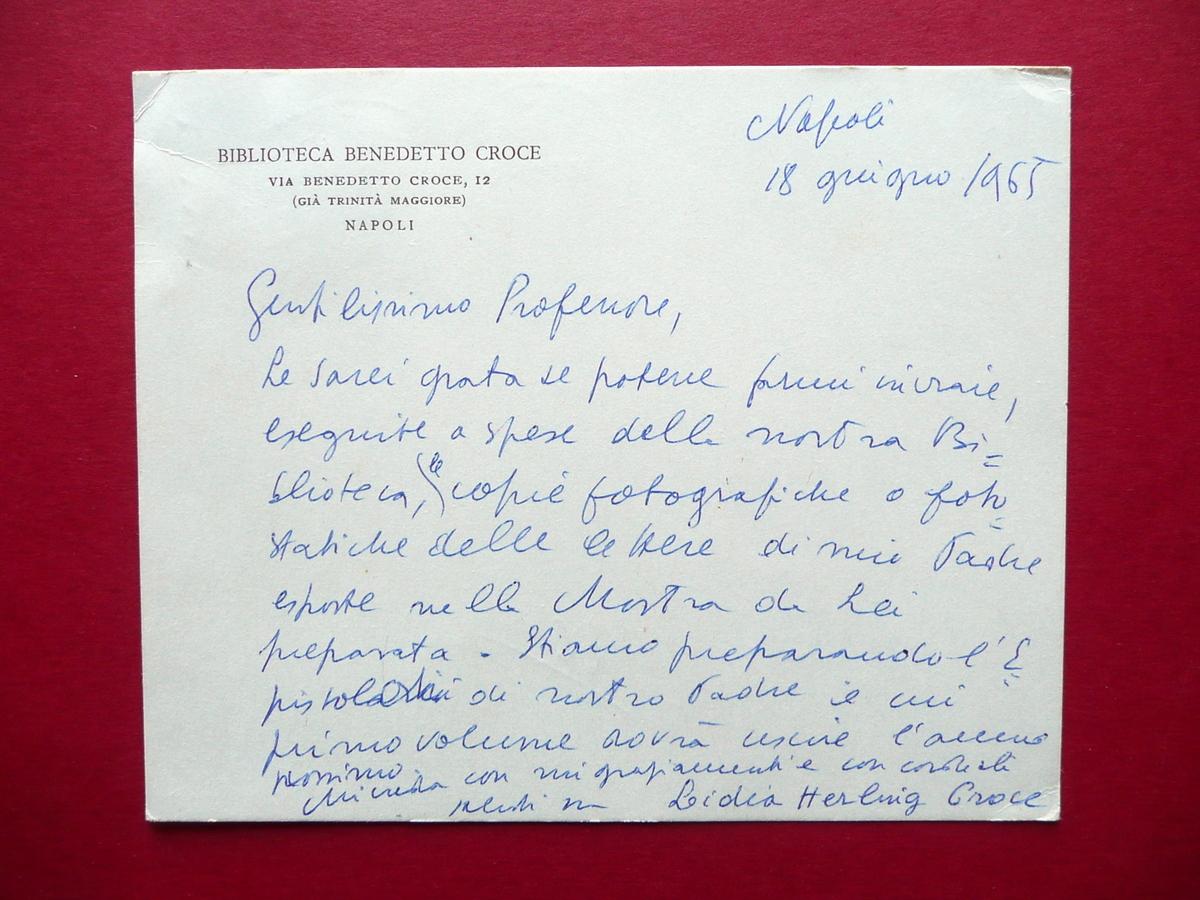 BIBLIOTECA BENEDETTO CROCE
VIA BENEDETTO CROCE, 12
(GIÀ TRINITÀ MAGGIORE)
NAPOLI
Napoli
18 giugno 1965
Gentilissimo Professore,
Le sarei grata se potesse farmi inviare,
eseguite a spese della nostra Bi=
blioteca, le copie fotografiche o foto=
statiche delle lettere di mio Padre
esposte nella Mostra da Lei
preparata. Stiamo preparando l'E=
pistolario di nostro Padre il cui
primo volume dovrà uscire l'anno
prossimo
Mi creda con ringraziamenti e con cordiali
saluti sua Lidia Herling Croce